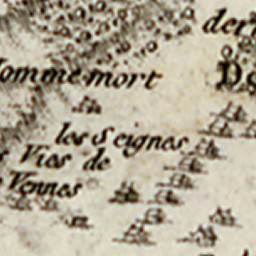 der
omme mort
les Seignes
Vies de
Vennes